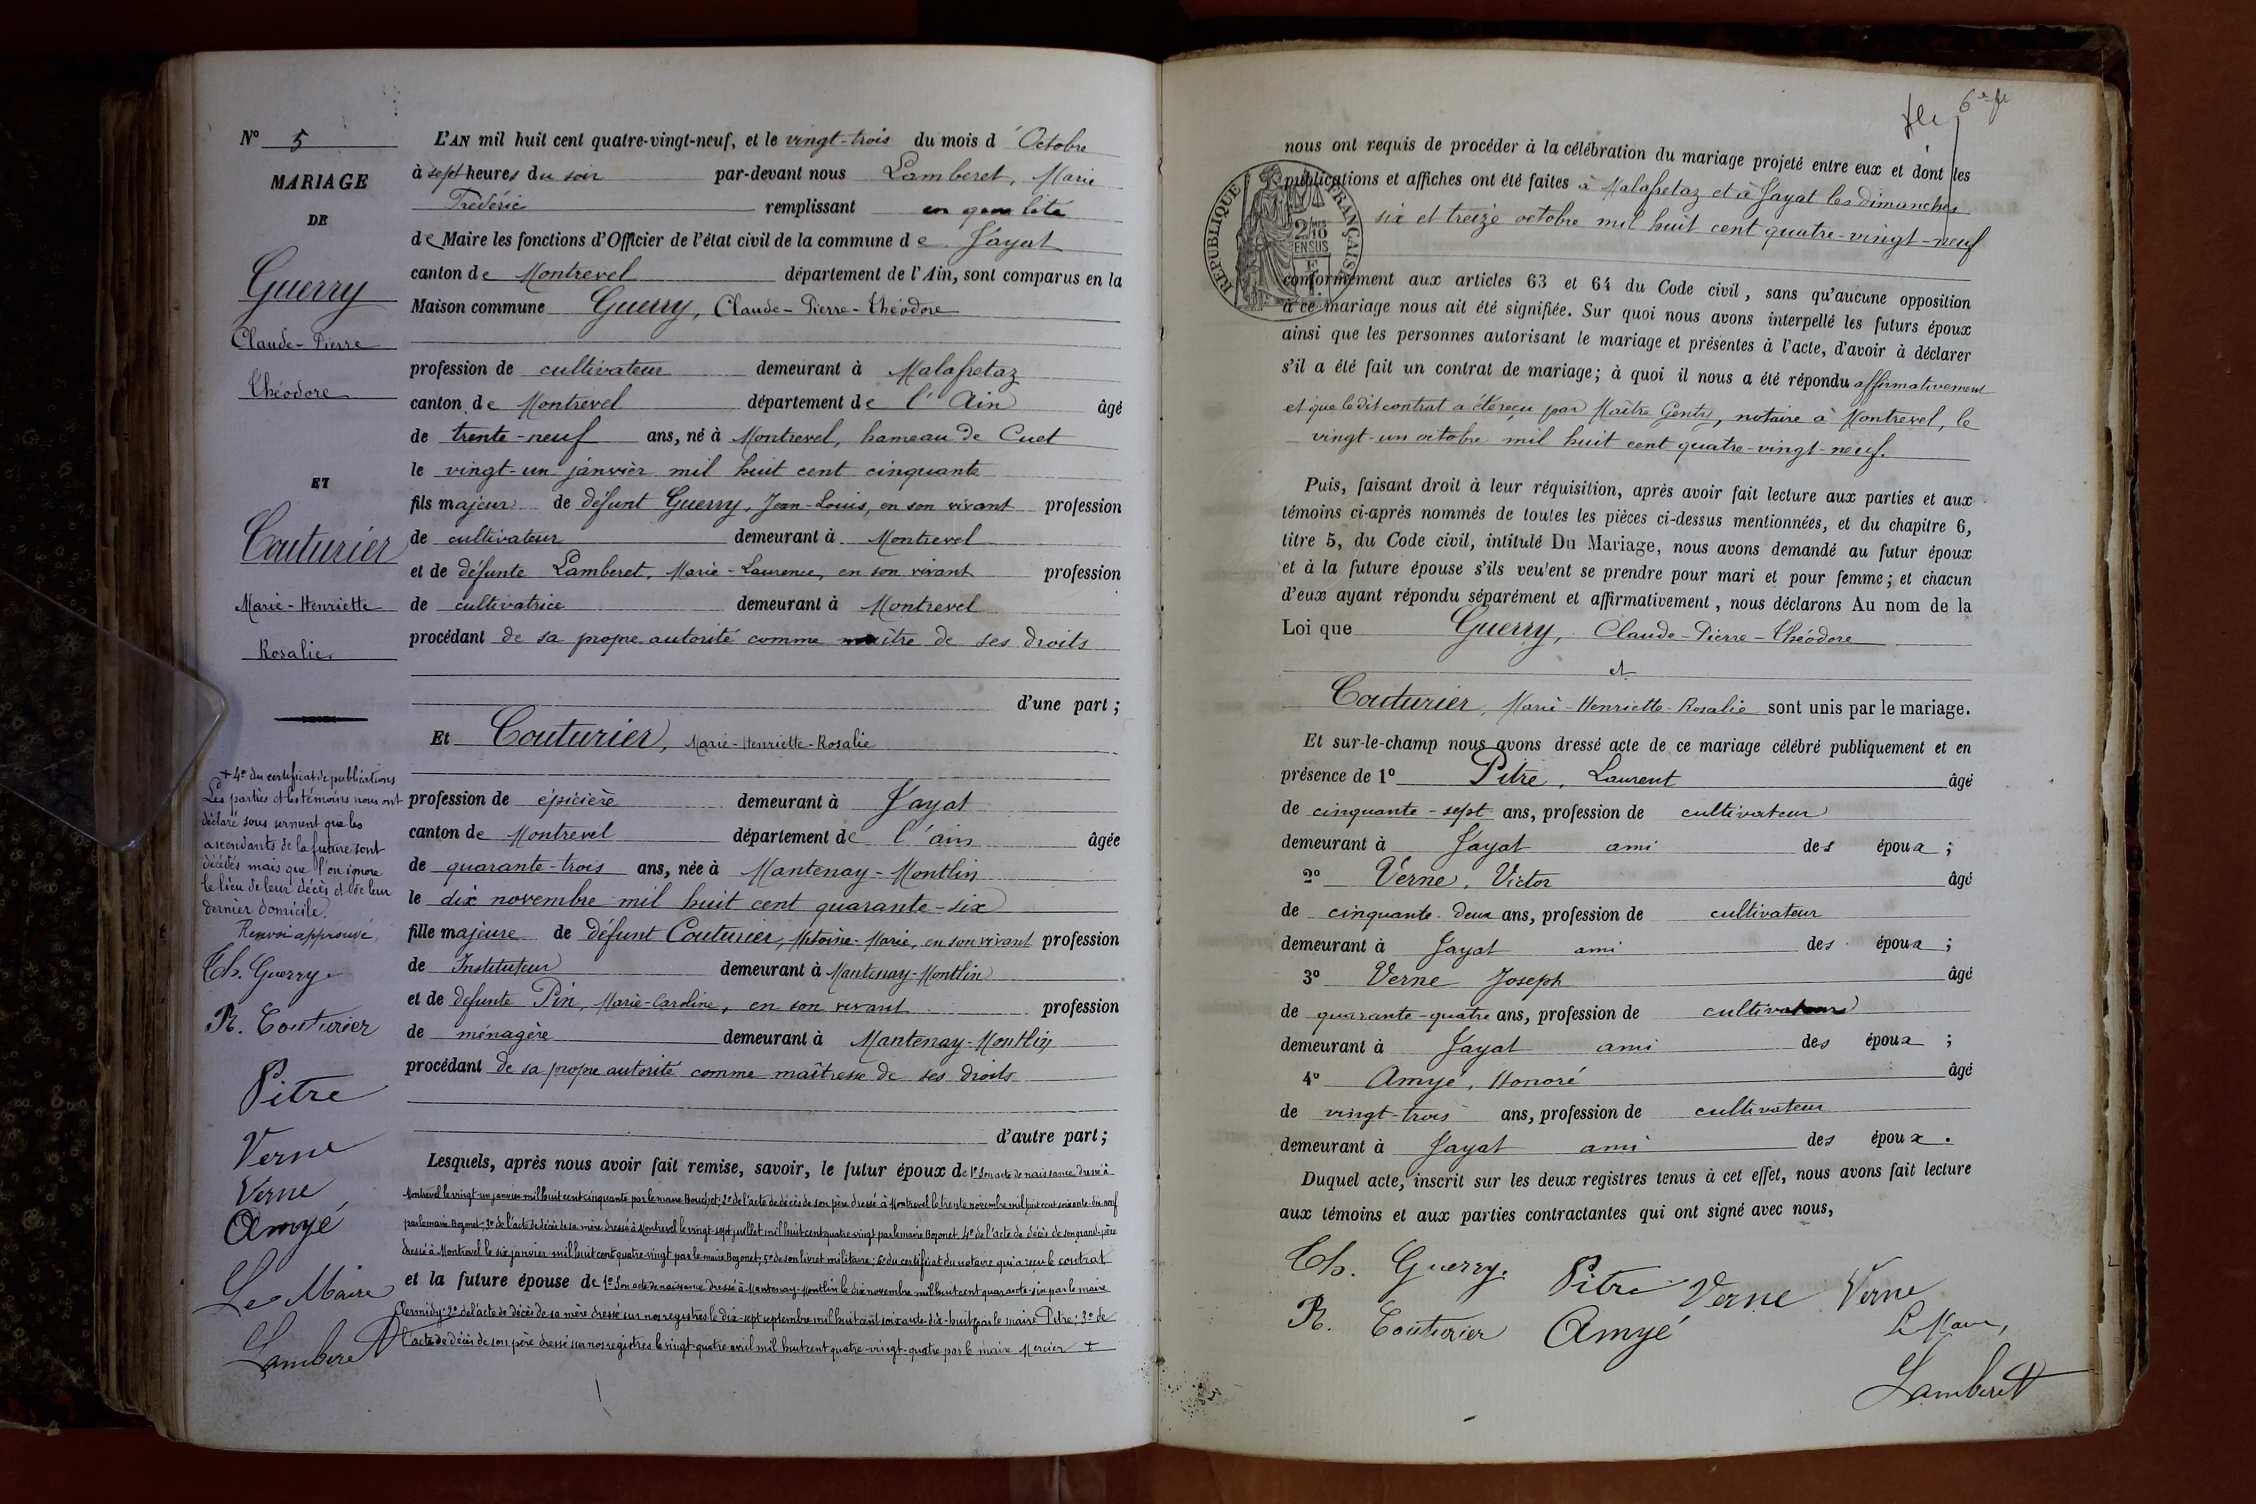 N° 5
MARIAGE
DE
Guerry
Claude-Pierre
Théodore
ET
Couturier
Marie-Henriette
Rosalie
+ 4° du certificat de publications
Les parties et les témoins nous ont
déclaré sous serment que les
ascendants de la future sont
décédés mais que l'on ignore
le lieu de leur décès et de leur
dernier domicile.
Renvoi approuvé
Th. Guerry
R. Couturier
Pitre
Verne
Verne
Amyé
Le Maire
Lamberet
L'AN mil huit cent quatre-vingt-neuf, et le vingt-trois du mois d'Octobre
à sept heures du soir par-devant nous Lamberet, Marie
Frédéric remplissant en qualité
de Maire les fonctions d'Officier de l'état civil de la commune de Jayat
canton de Montrevel département de l'Ain, sont comparus en la
Maison commune Guerry, Claude-Pierre-Théodore
profession de cultivateur demeurant à Malafretaz
canton de Montrevel département de l'Ain âgé
de trente-neuf ans, né à Montrevel, hameau de Cuet
le vingt-un janvier mil huit cent cinquante
fils majeur de défunt Guerry, Jean-Louis, en son vivant profession
de cultivateur demeurant à Montrevel
et de défunte Lamberet, Marie-Laurence, en son vivant profession
de cultivatrice demeurant à Montrevel
procédant de sa propre autorité comme maître de ses droits
d'une part ;
Et Couturier, Marie-Henriette-Rosalie
profession de épicière demeurant à Jayat
canton de Montrevel département de l'ain âgée
de quarante-trois ans, née à Mantenay-Montlin
le dix novembre mil huit cent quarante-six
fille majeure de défunt Couturier, Antoine-Marie, en son vivant profession
de Instituteur demeurant à Mantenay-Montlin
et de défunte Pin, Marie-Caroline, en son vivant profession
de ménagère demeurant à Mantenay-Montlin
procédant de sa propre autorité comme maîtresse de ses droits
d'autre part ;
Lesquels, après nous avoir fait remise, savoir, le futur époux de 1° Son acte de naissance dressé à
Montrevel le vingt-un janvier mil huit cent cinquante par le maire ; 2° de l'acte de décès de son père dressé à Montrevel le trente novembre mil huit cent soixante-dix-neuf
par le maire Bozonet ; 3° de l'acte de décès de sa mère dressé à Montrevel le vingt-sept juillet mil huit cent quatre-vingt par le maire Bozonet 4° de l'acte de décès de son grand-père
dressé à Montrevel le six janvier mil huit cent quatre-vingt par le maire Bozonet ; 5° de son livret militaire ; 6° du certificat du notaire qui a reçu le contrat
et la future épouse de 1° Son acte de naissance dressé à Mantenay-Montlin le dix novembre mil huit cent quarante-six par le maire
2° de l'acte de décès de sa mère dressé sur nos registres le dix-sept septembre mil huit cent soixante-dix-huit par le maire Pitre ; 3° de
l'acte de décès de son père dressé sur nos registres le vingt-quatre avril mil huit cent quatre-vingt-quatre par le maire Mercier +
6e
nous ont requis de procéder à la célébration du mariage projeté entre eux et dont les
publications et affiches ont été faites à Malafretaz et à Jayat les dimanches
six et treize octobre mil huit cent quatre-vingt-neuf
RÉPUBLIQUE FRANÇAISE
2/10 EN SUS
conformément aux articles 63 et 64 du Code civil, sans qu'aucune opposition
à ce mariage nous ait été signifiée. Sur quoi nous avons interpellé les futurs époux
ainsi que les personnes autorisant le mariage et présentes à l'acte, d'avoir à déclarer
s'il a été fait un contrat de mariage ; à quoi il nous a été répondu affirmativement
et que le dit contrat a été reçu par Maître Gentis, notaire à Montrevel, le
vingt-un octobre mil huit cent quatre-vingt-neuf.
Puis, faisant droit à leur réquisition, après avoir fait lecture aux parties et aux
témoins ci-après nommés de toutes les pièces ci-dessus mentionnées, et du chapitre 6,
titre 5, du Code civil, intitulé Du Mariage, nous avons demandé au futur époux
et à la future épouse s'ils veulent se prendre pour mari et pour femme ; et chacun
d'eux ayant répondu séparément et affirmativement, nous déclarons Au nom de la
Loi que Guerry, Claude-Pierre-Théodore
et
Couturier, Marie-Henriette-Rosalie sont unis par le mariage.
Et sur-le-champ nous avons dressé acte de ce mariage célébré publiquement et en
présence de 1° Pitre, Laurent âgé
de cinquante-sept ans, profession de cultivateur
demeurant à Jayat ami des époux ;
2° Verne, Victor âgé
de cinquante-deux ans, profession de cultivateur
demeurant à Jayat ami des époux ;
3° Verne Joseph âgé
de quarante-quatre ans, profession de cultivateur
demeurant à Jayat ami des époux ;
4° Amyé, Honoré âgé
de vingt-trois ans, profession de cultivateur
demeurant à Jayat ami des époux.
Duquel acte, inscrit sur les deux registres tenus à cet effet, nous avons fait lecture
aux témoins et aux parties contractantes qui ont signé avec nous,
Th. Guerry. Pitre Verne Verne
R. Couturier Amyé Le Maire,
Lamberet